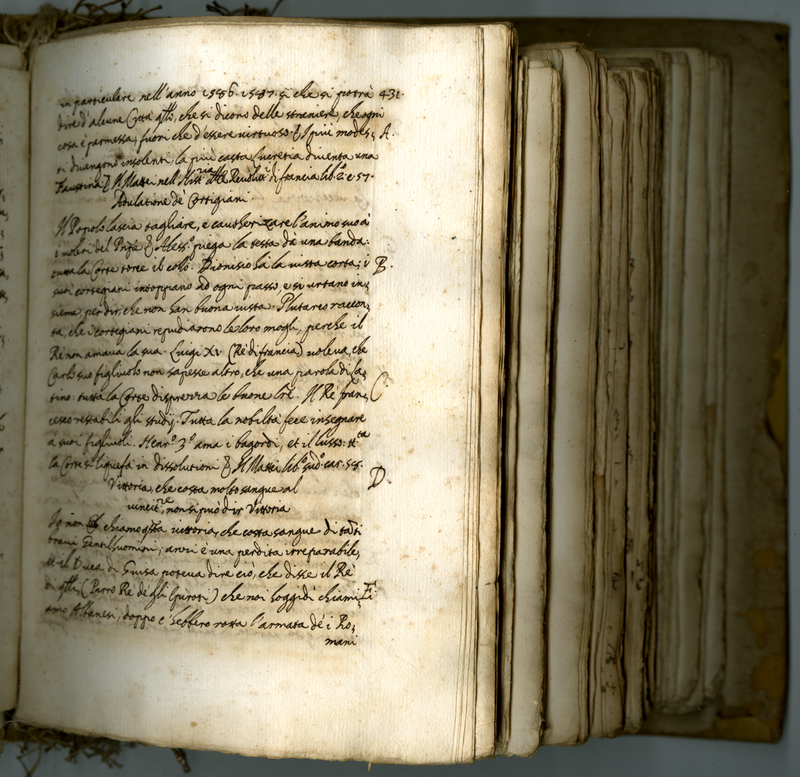 in particulare nell'anno 1586. 1587. si che si potrà 431.
dire d'alcune Città qlli, che si dicono delle straniere, che ogni
cosa è permessa, fuori che d'essere virtuoso. I più modes; A.
ti divengono insolenti, la più casta Lucretia diventa una
Faustina Il Mattei nell'Hist. Revolut. di francia lib.º 2. c. 57.
Adulatione de Cortigiani
Il Popolo lascia tagliare, e cautherizare l'animo suo à
i voleri del Aless.º piega la testa dà una banda:
tutta la Corte torce il collo. Dionisio hà la vista corta; i B.
suoi cortegiani intoppano ad ogni passo, e si urtano in,
sieme, per dir, che non han buona vista. Plutarco raccon,
ta, che i cortegiani repudiarono le loro mogli, perche il
Rè non amava la sua. Luigi XI. (Rè di francia) voleva, che
Carlo suo figliuolo non sapesse altro, che una parola di La,
tino: tutta la Corte disprezza le buone lre. Il Rè fran, C.
cesco restabili gli studij. Tutta la nobiltà fece insegnare
a suoi figlivoli. Henr.º 3.º ama i bagordi, et il lusso: tt.ta
la Corte si liquefà in dissolutioni Il Mattei lib.º sud.º car. 58.
Vittoria, che costa molto sangue al D.
vincit.re, non si può dir Vittoria
Io non chiamo qsta vittoria, che costa sangue di tati
bravi Gentilhuomini; anzi è una perdita irreparabile,
et il Duca di Guisa poteva dire ciò, che disse il Rè
di qlli, (Pirro Rè de gli Epiroti) che noi hoggidì chiami, E.
amo Albanesi, doppo c'hebbero rotta l'armata de i Ro,
mani